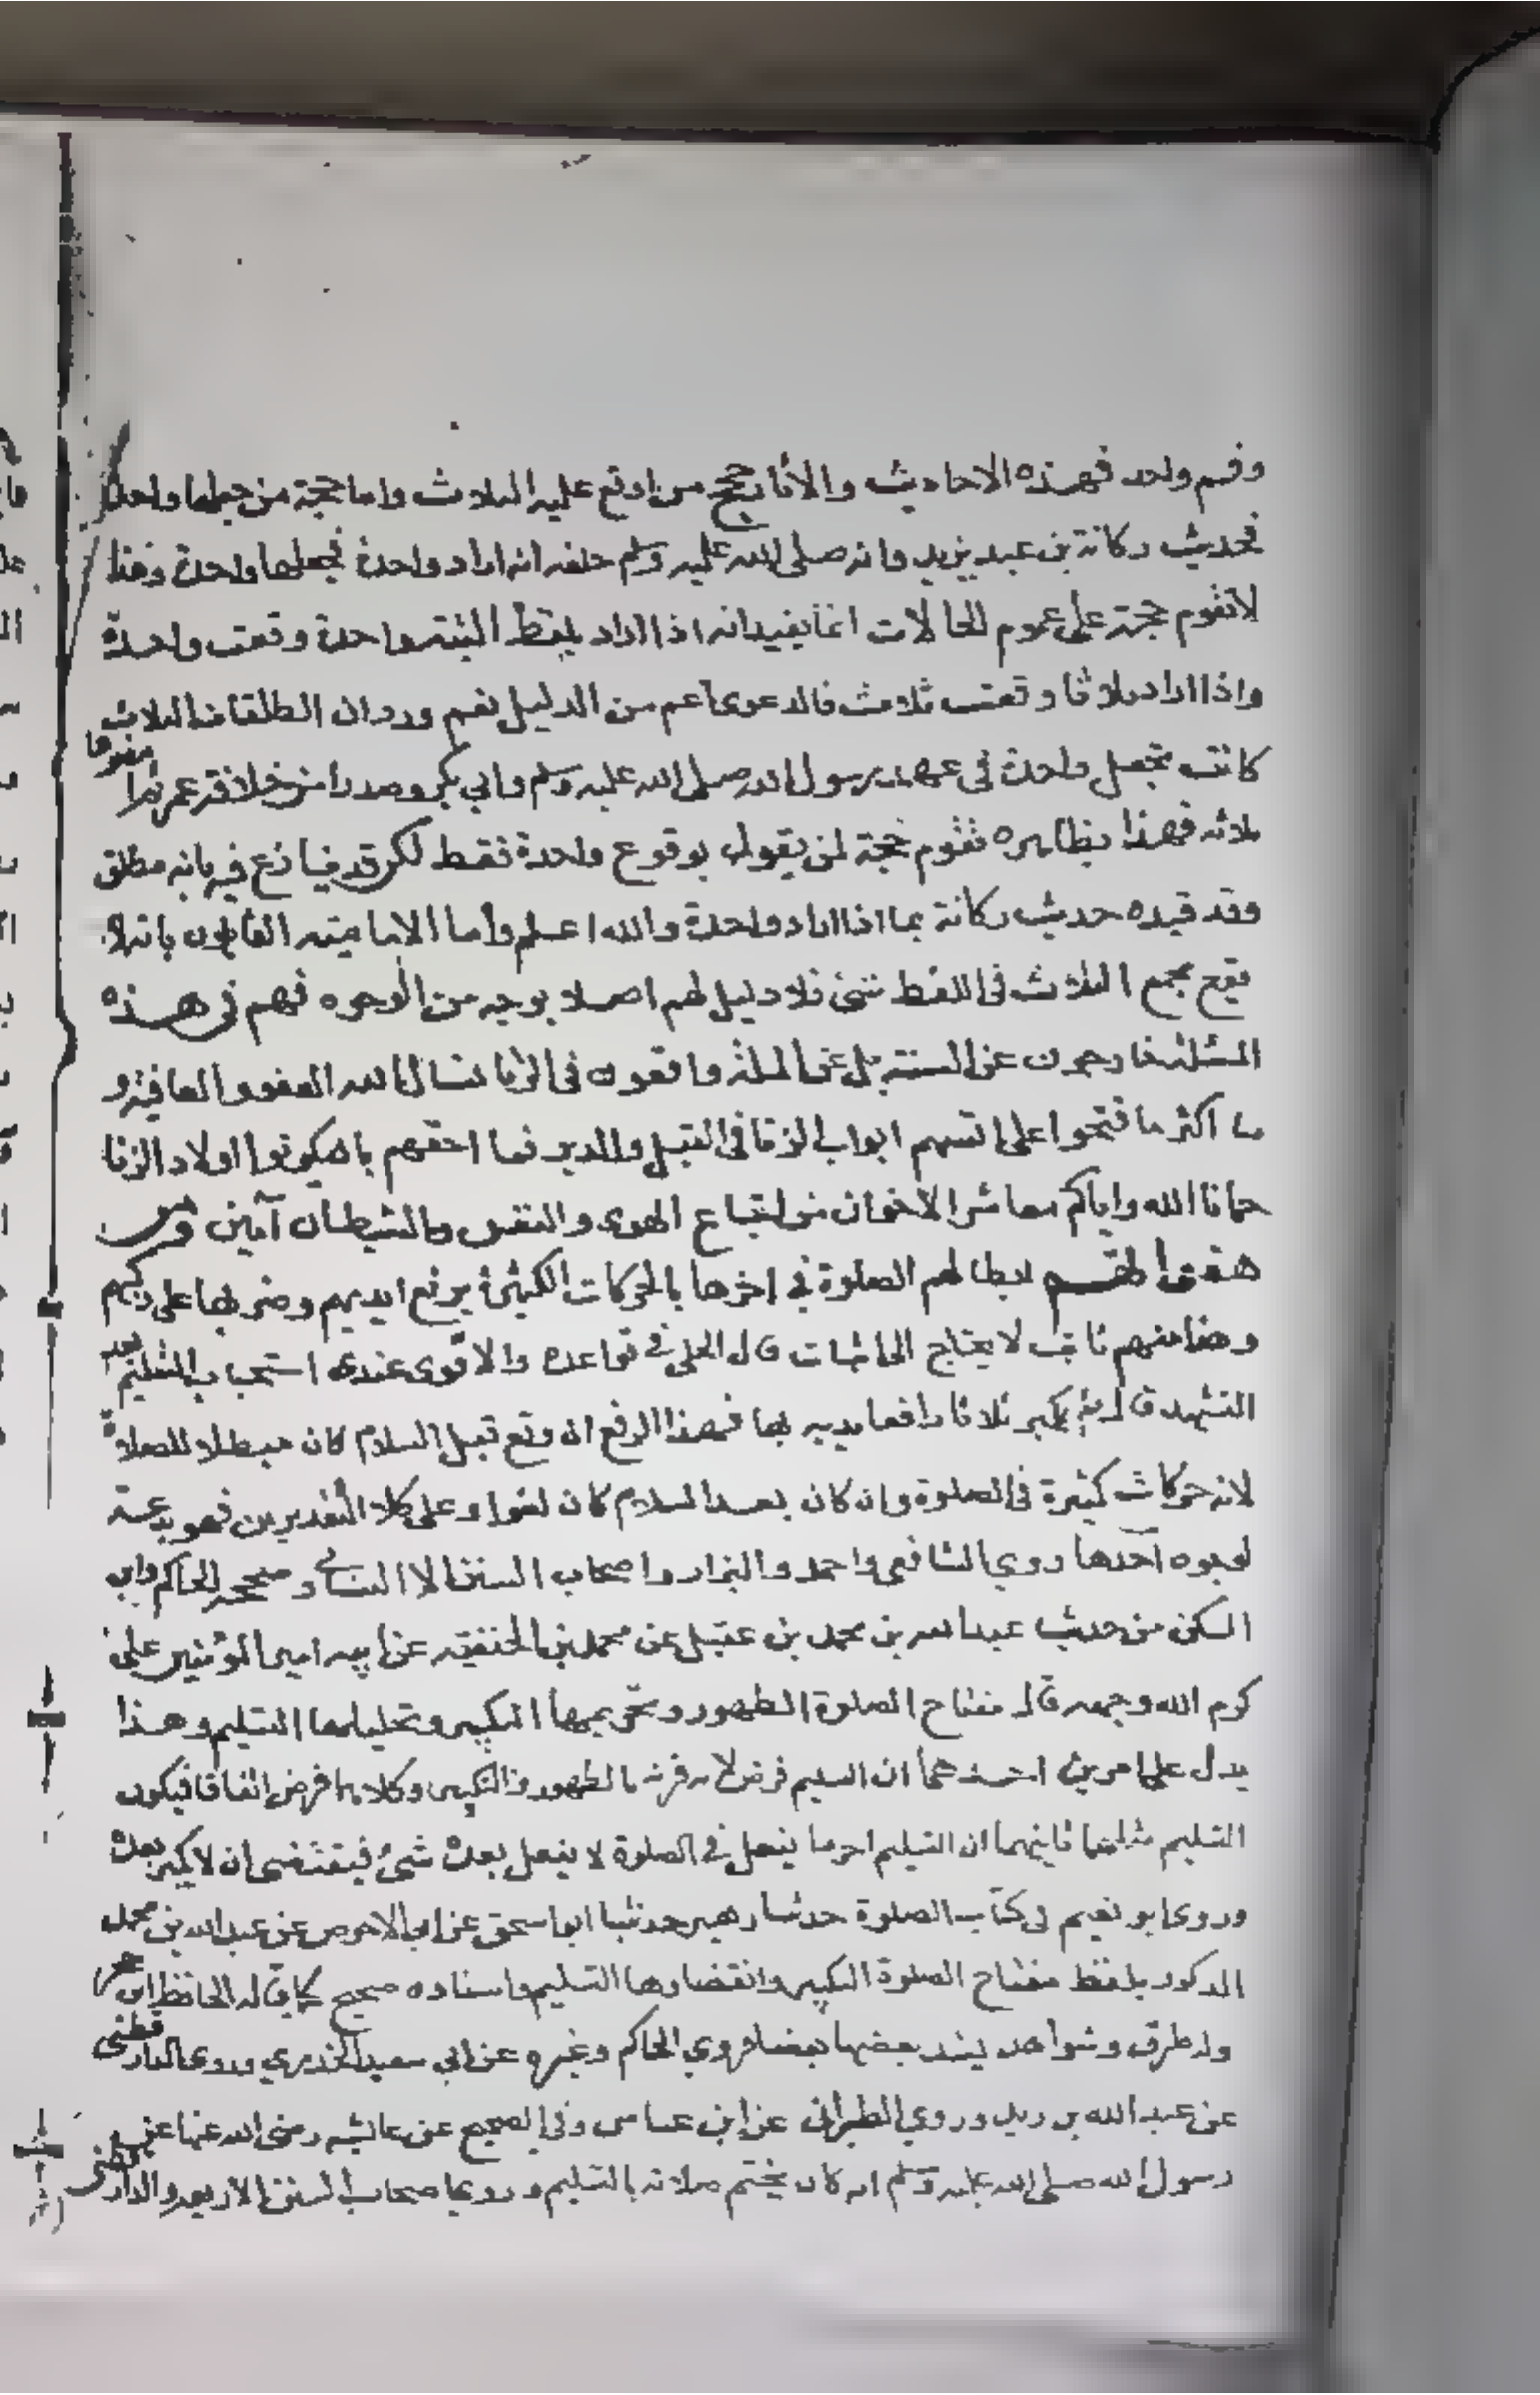 وفم واحد فهذه الاحاديث والأثار حجج من اوقع عليه الثلاث واما حجة من جعلها واحدة
فحديث ركانة بن عبد يزيد وانه صلى الله عليه وسلم حلفه انه اراد واحدة فجعلها واحدة وهذا
لا تقوم حجة على عموم الحالات انما يفيد انه اذا اراد بلفظ البتة واحدة وقعت واحدة
واذا اراد ثلاثا وقعت ثلاث فالدعوى اعم من الدليل نعم ورد ان الطلقات الثلاث
كانت تجعل واحدة في عهد رسول الله صلى الله عليه وسلم وابي بكر وصدرا من خلافة عمر
ثلاثه فهذا بظاهره تقوم حجة لمن يقول بوقوع واحدة فقط لكن قد ينازع فيه بانه مطلق
وقد قيده حديث ركانة بما اذا اراد واحدة والله اعلم وأما الامامية القائلون بانه لا
يقع بجمع الثلاث في اللفظ شئ فلا دليل لهم اصلا بوجه من الوجوه فهم في هذه
المسئلة خارجون عن السنة بل عن الملة واقعون في الزنا نسال الله العفو والعافية و
ما اكثر ما فتحوا على انفسهم ابواب الزنا في القبل والدبر فما احقهم بان يكونوا اولاد الزنا
حمانا الله واياكم معاشر الاخوان من اتباع الهوى والنفس والشيطان آمين ومن
هفواتهم ابطالهم الصلوة في اخرها بالحركات الكثيرة برفع ايديهم وضربها على ركبهم
وهذا منهم ثابت لا يحتاج الى اثبات قال الحلي في قواعده والاقوى عندى استحباب التسليم بعد
التشهد قال ثم يكبر ثلاثا رافعا يديه بها فهذا الرفع ان وقع قبل السلام كان مبطلا للصلاة
لانه حركات كثيرة في الصلوة وان كان بعد السلام كان لغوا وعلى كلا التقديرين فهو بدعة
لوجوه آحدها روي الشافعي واحمد والبزار واصحاب السنن الا النسائي وصححه الحاكم وابن
السكن من حديث عبد الله بن محمد بن عقيل عن محمد بن الحنفية عن ابيه امير المؤمنين على
كرم الله وجهه قال مفتاح الصلوة الطهور وتحريمها التكبير وتحليلها التسليم وهذا
يدل على امرين احدهما ان التسليم فرض لانه قرنه بالطهور والتكبير وكلاهما فرض اتفاقا فيكون
التسليم مثلهما ثانيهما ان التسليم اخر ما يفعل في الصلوة لا يفعل بعده شئ فيقتضى ان لا يكبر بعده
وروى ابو نعيم في كتاب الصلوة حدثنا زهير حدثنا ابو اسحق عن ابي الاحوص عن عبد الله بن محمد
المذكور بلفظ مفتاح الصلوة التكبير وانقضاوها التسليم واسناده صحيح كما قاله الحافظ ابن حجر
وله طرق وشواهد يشد بعضها بعضا فروي الحاكم وغيره عن ابي سعيد الخدري وروى الدارقطنى
عن عبد الله بن زيد وروي الطبراني عن ابن عباس وفي الصحيح عن عائشه رضى الله عنها عن
رسول الله صلى الله عليه وسلم انه كان يختم صلاته بالتسليم وروى اصحاب السنن الاربعه والدارقطنى